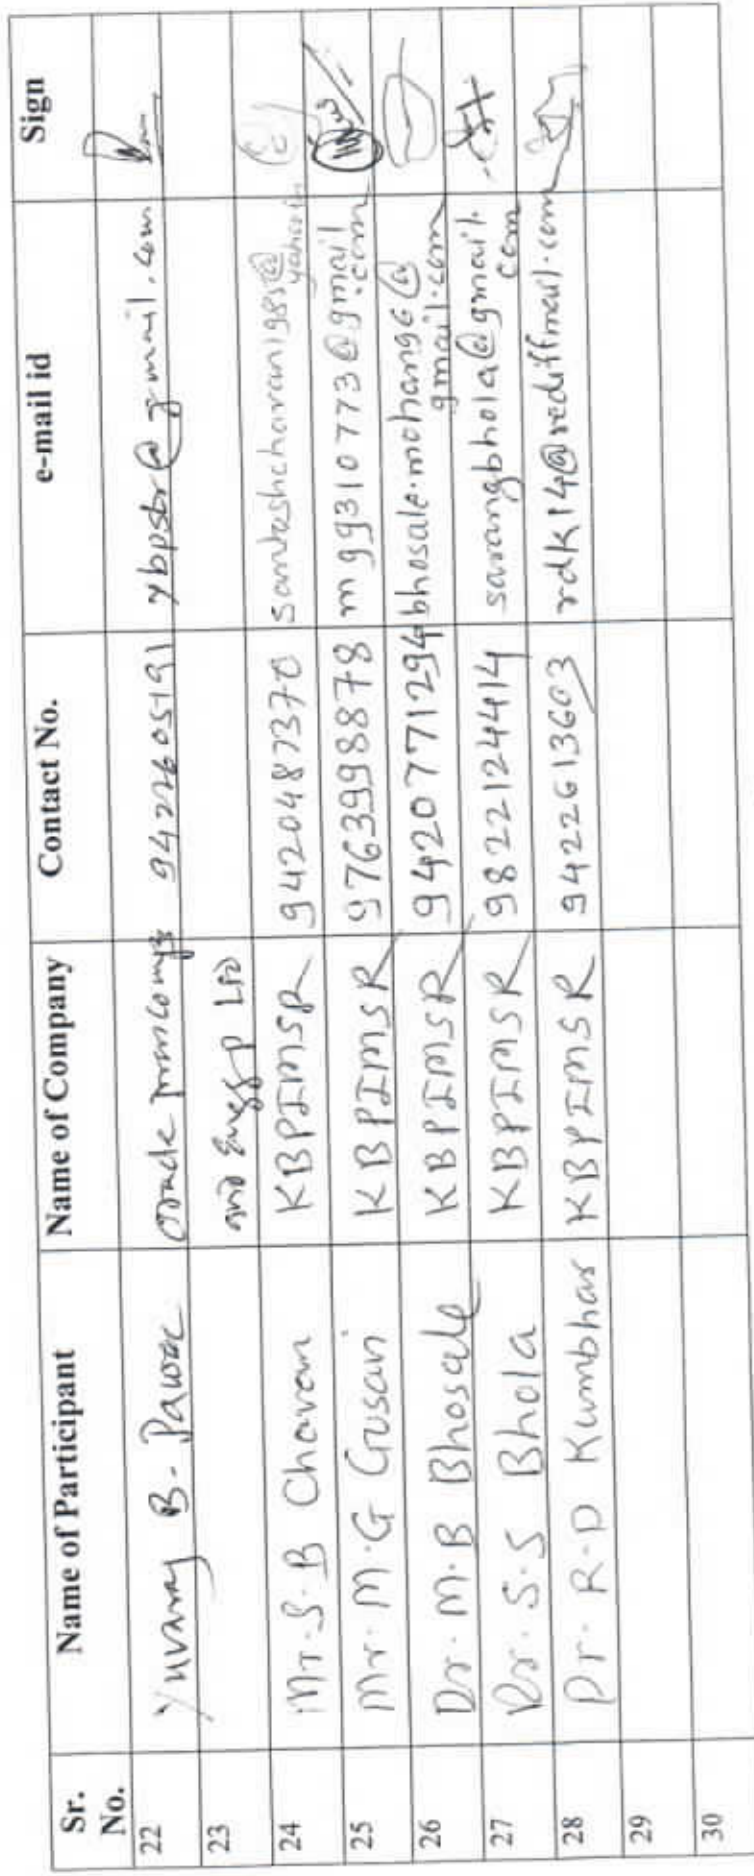 Sr. No. Name of Participant Name of Company Contact No. e-mail id Sign
22 Yuvaraj B. Pawar Oracle 9422605191 ybpstr@gmail.com
23 and Engg P Ltd
24 Mr. S. B Chavan KBPIMSR 9420487370 santoshchavan1985@yahoo.in
25 Mr. M. G Gusavi KBPIMSR 9763998878 mg9310773@gmail.com
26 Dr. M. B Bhosale KBPIMSR 9420771294 bhosale.mohan96@gmail.com
27 Dr. S. S Bhola KBPIMSR 9822124414 sarangbhola@gmail.com
28 Dr. R. D Kumbhar KBPIMSR 9422613603 rdk14@rediffmail.com
29
30